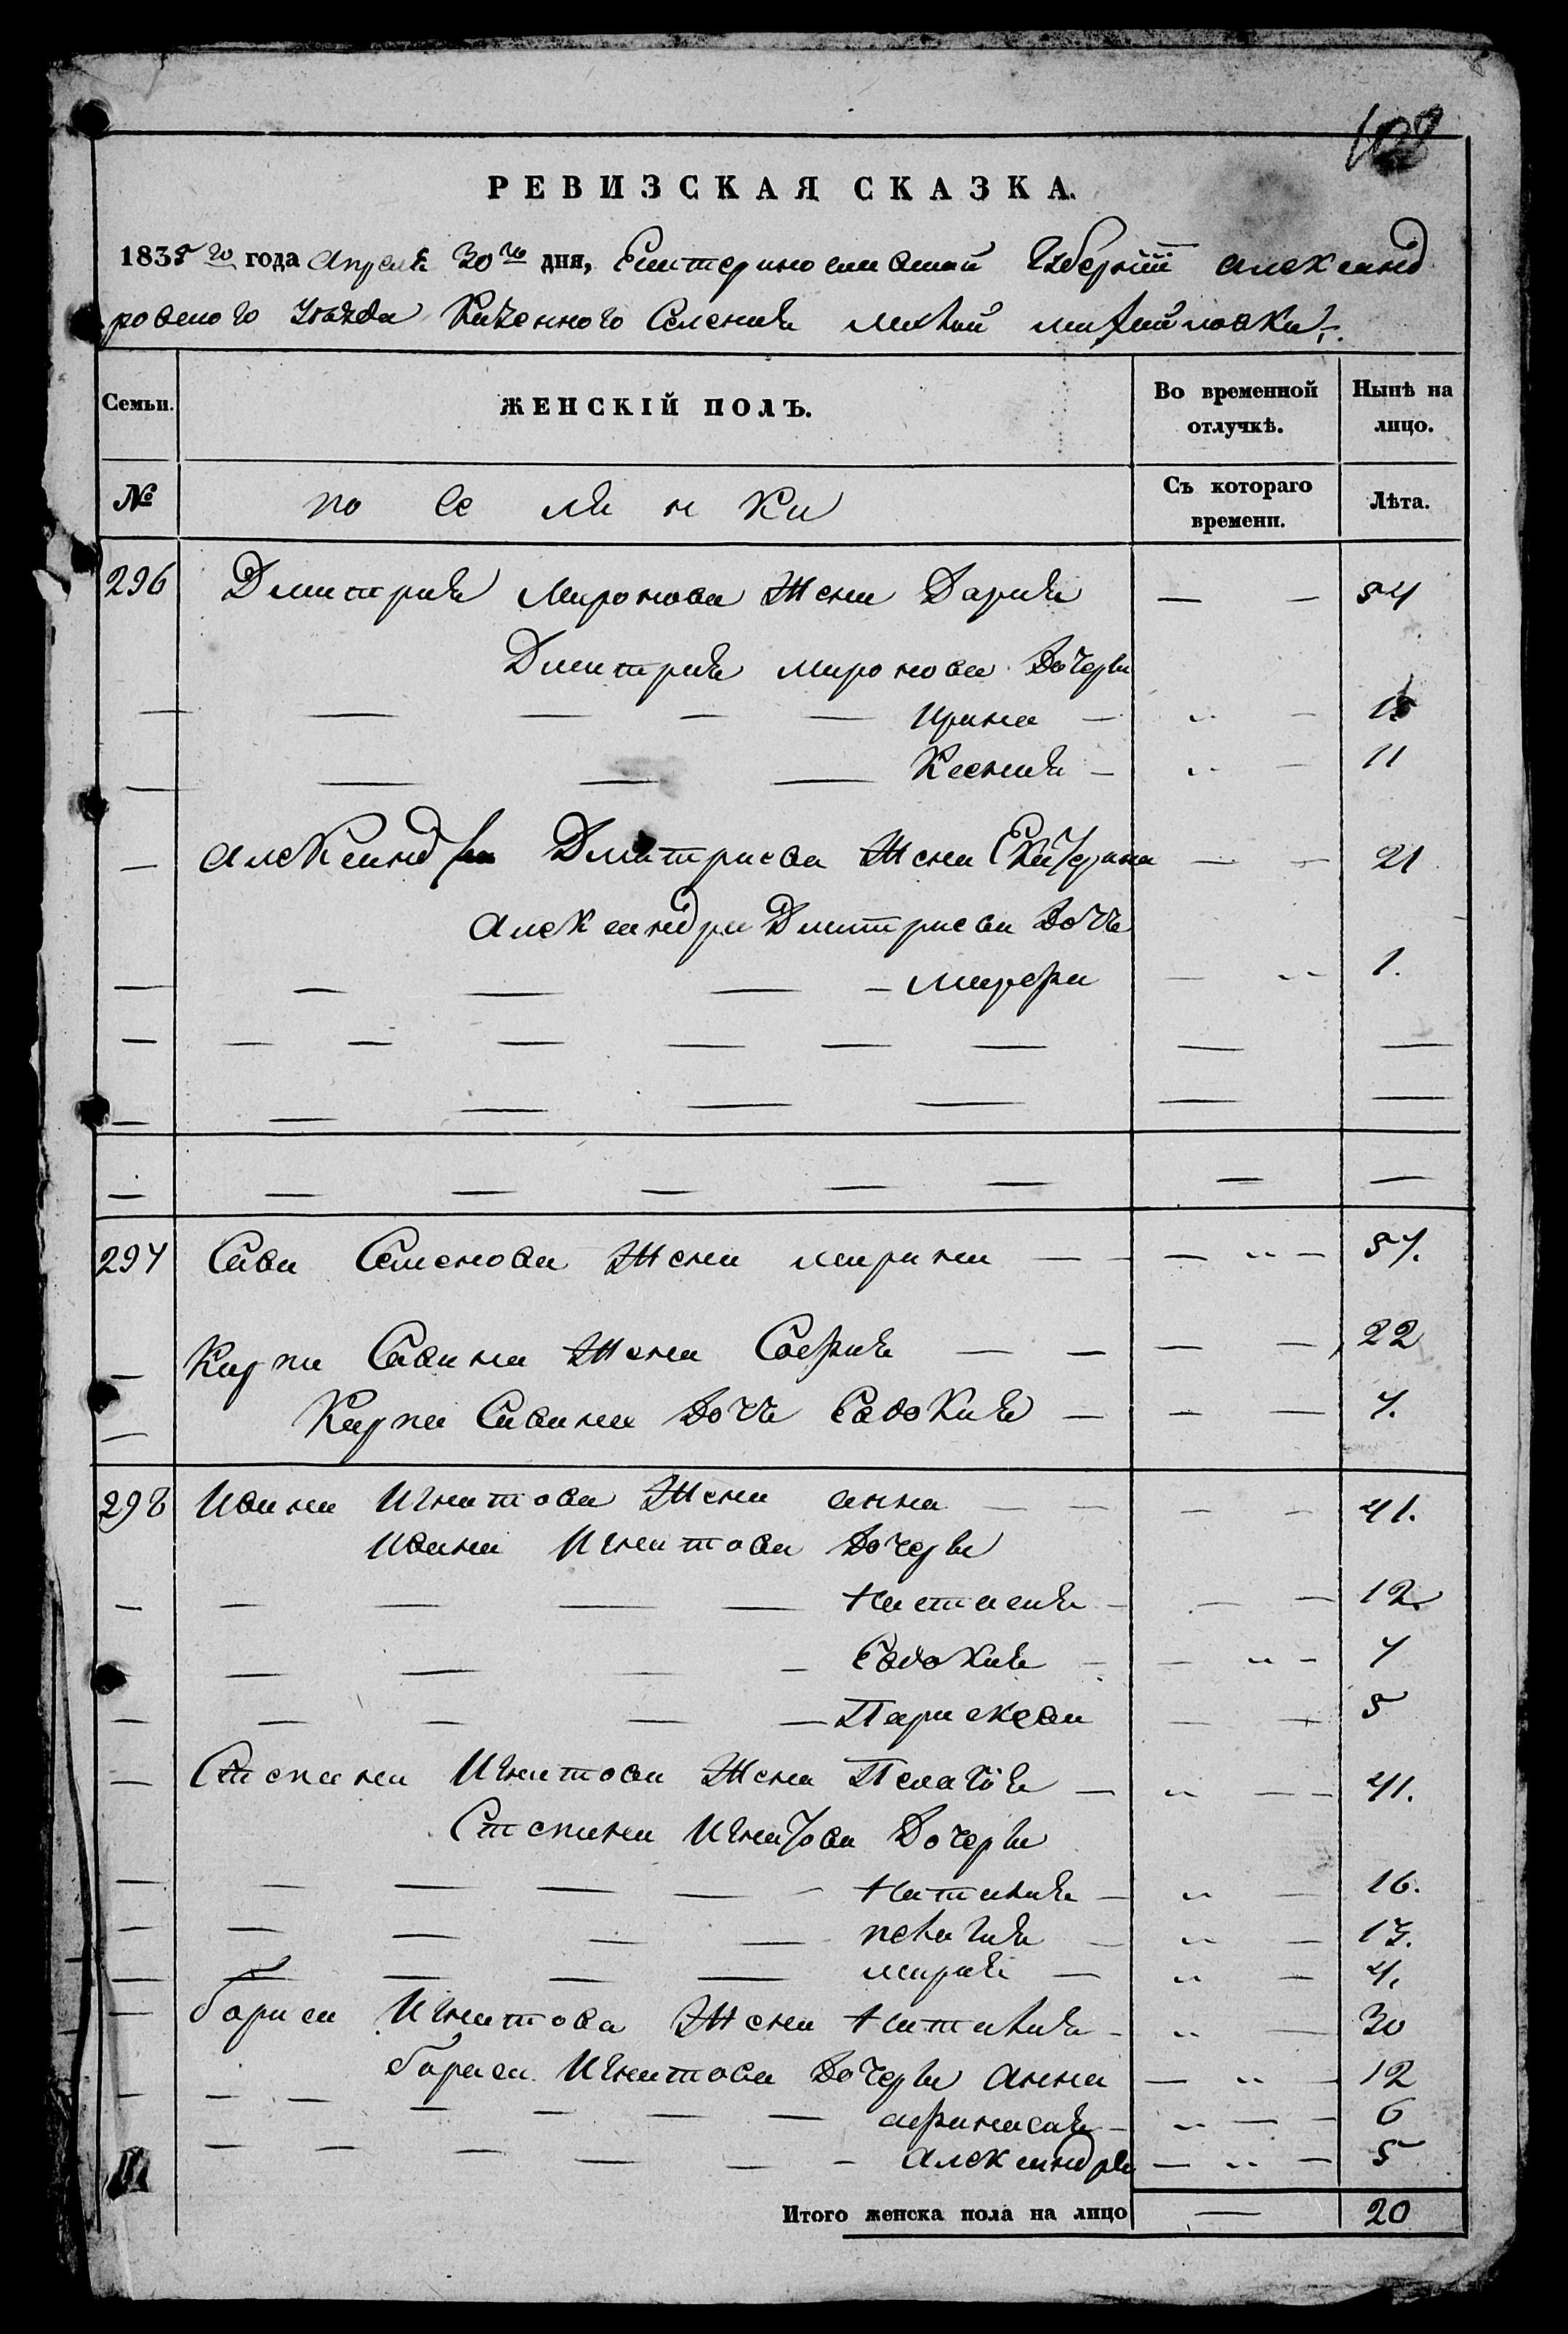 РЕВИЗСКАЯ СКАЗКА.
1835 го года Апреля 30 го дня, Екатеринославской Губернии Александ
ровского Уезда Казенного Селения Михайловки
Семьи. ЖЕНСКІЙ ПОЛЪ. Во временной отлучкѣ. Нынѣ на лицо.
№ поселянки Съ котораго времени. Лѣта.
296 Дмитрия Миронова Жена Дария — — 54
Дмитрия Миронова Дочери
Ирина —
Ксения — 11
Александра Дмитриева Жена Екатерина — — 21
Александра Дмитриева Дочь
Марфа 1.
297 Сави Семенова Жена Марина — 57.
Карпа Савина Жена София — — 22
Карпа Савина Дочь Евдокия — 7.
298 Ивана Игнатова Жена Анна — — 41.
Ивана Игнатова Дочери
Настасия — 12
Евдокия — 7
Параскева 5
Степана Игнатова Жена Пелагия — 41.
Степана Игнатова Дочери
Наталия — 16.
Пелагия — 13.
Мария — 4.
Бориса Игнатова Жена Наталия — 30
Бориса Игнатова Дочери Анна — 12
Афанасия — 6
Александра — 5
Итого женска пола на лицо — 20